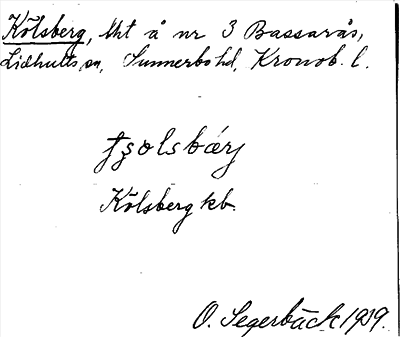 Kölsberg, lht å nr 3 Bassarås,
Lidhults sn, Sunnerbo hd, Kronob. l.
Kölsberg kb.
O. Segerbäck 1919.